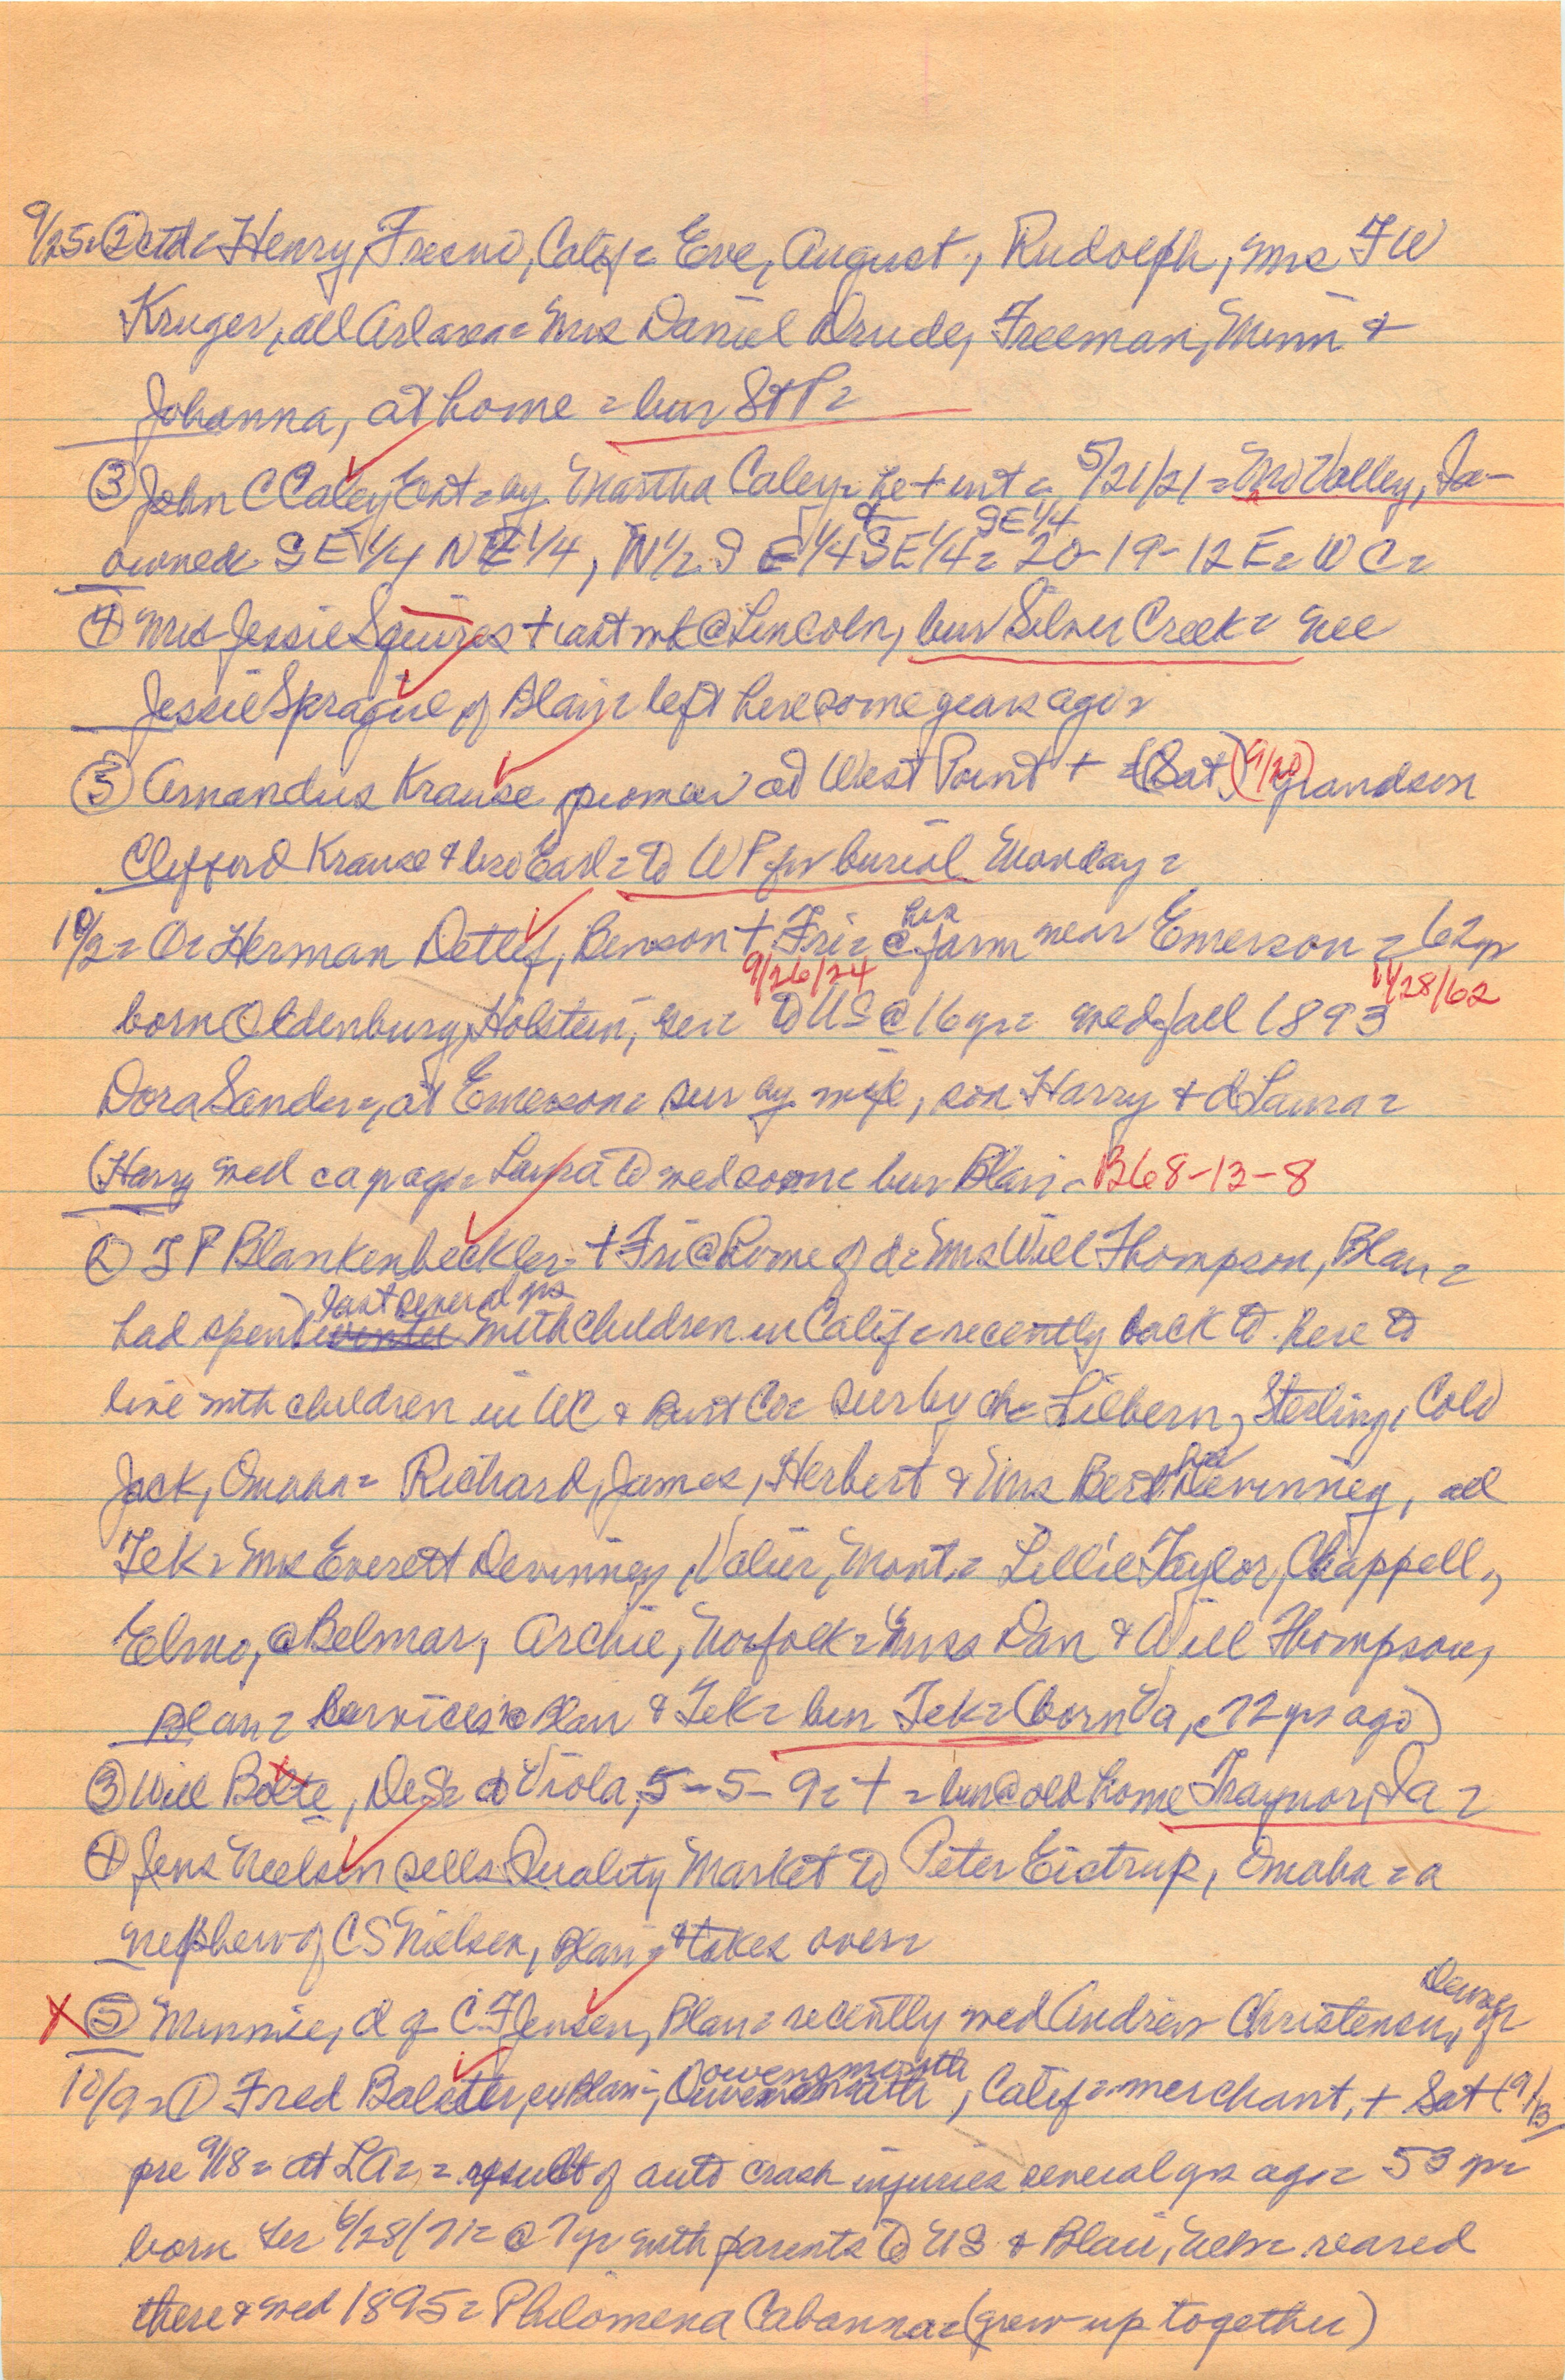 9/25= ② ctd= Henry, Fresno, Calif= Eve, August, Rudolph, Mrs FW
Kruger, all Arl area= Mrs Daniel Drude, Freeman, Minn &
Johanna, at home = bur St P=
③ John C Caley Est= by Martha Caley= he + int = 5/21/21 = Mo Valley, Ia-
owned SE 1/4 NE 1/4, N 1/2 SE 1/4 & SE 1/4 SE 1/4 = 20-19-12 E= W C=
④ Mrs Jessie Squires + last wk @ Lincoln, bur Silver Creek= nee
Jessie Sprague of Blair= left here some years ago=
⑤ Amandus Krause pioneer at West Point + = (Sat) (9/20) grandson
Clifford Krause & bro Earl= to WP for burial Monday=
10/2= Or Herman Detlef, Benson + Fri= @ his farm near Emerson = 62 yr
9/26/24 11/28/62
born Oldenburg, Holstein, Ger= to US @ 16 yr= med fall 1893
Dora Sander=, at Emerson= sur by wife, son Harry & d Laura=
(Harry med ca yr ago= Laura to med soon= bur Blair= B68-13-8
② J P Blankenbeckler= + Fri @ home of d= Mrs Will Thompson, Blair=
had spent last several yrs with children in Calif= recently back to here to
live with children in WC & Burt Co= sur by ch= Lilbern, Sterling, Colo
Jack, Omaha= Richard, James, Herbert & Mrs Bertha Devinney, all
Tek= Mrs Everett Devinney, Valier, Mont= Lillie Taylor, Chappell=,
Elmo, @ Belmar, Archie, Norfolk= Mrs Dan & Will Thompson,
Blair= Services @ Blair & Tek= bur Tek= (born Va, 72 yrs ago)
③ Will Bolte, DeS= d Viola, 5-5-9= + = bur @ old home Traynor, Ia=
④ Jens Neilsen sells Quality Market to Peter Eistrup, Omaha= a
nephew of C S Nielsen, Blair= & takes over=
X ⑤ Minnie, d of C F Jensen, Blair= recently med Andrew Christensen,
10/9= ① Fred Balster, ex Blair=, Owensmouth, Calif= merchant, + Sat (9/13
pre 9/18= at LA= = result of auto crash injuries several yrs ago= 53 yr=
born Ger 6/28/71= @ 7 yr with parents to US & Blair, Neb= reared
there & med 1895= Philomena Cabanna= (grew up together)